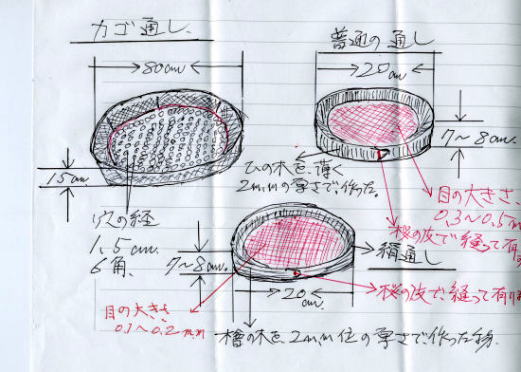 カゴ通し.
80cm
15cm
穴の経
1.5cm.
6角.
普通の通し
20cm
7~8cm.
ひの木を、薄く
2m.mの厚さで、作った.
目の大きさ、
0.3~0.5m
桜の皮で、縫って有り
絹通し
7~8cm
20cm.
目の大きさ、
0.1~0.2m.m
桜の皮で、縫って有り
檜の木を、2m.m位の厚さで、作った